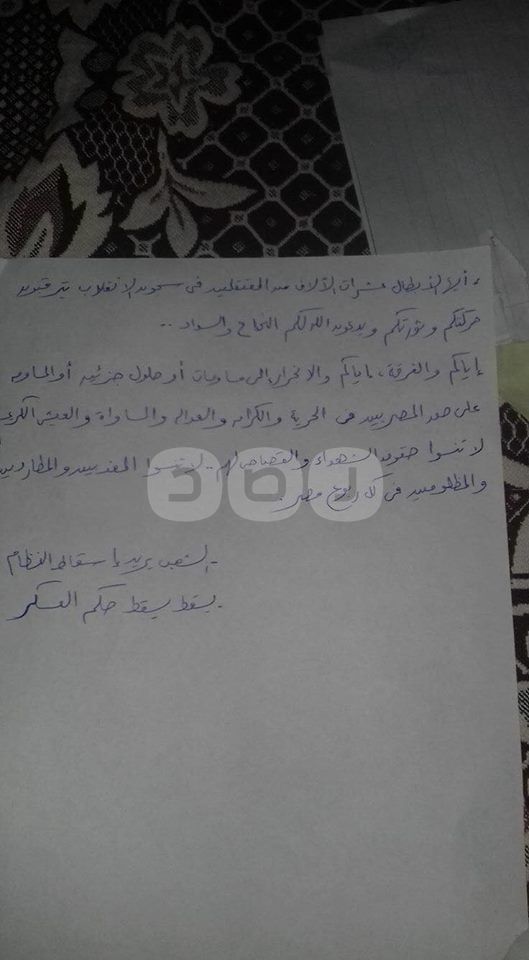 ، أيها الأبطال عشرات الآلاف من المعتقلين في سجون الانقلاب يترقبون
حركتكم وثورتكم ويدعون الله لكم النجاح والسداد ..
إياكم والفرقة ، إياكم والانجرار إلى مساومات أو حلول جزئيه أو المساومه
على حق المصريين في الحرية والكرامه والعداله والمساواة والعيش الكريم
لا تنسوا حقوق الشهداء والقصاص لهم .. لا تنسوا المغيبين والمطاردين
والمظلومين في كل ربوع مصر .
- الشعب يريد إسقاط النظام
- يسقط يسقط حكم العسكر
360